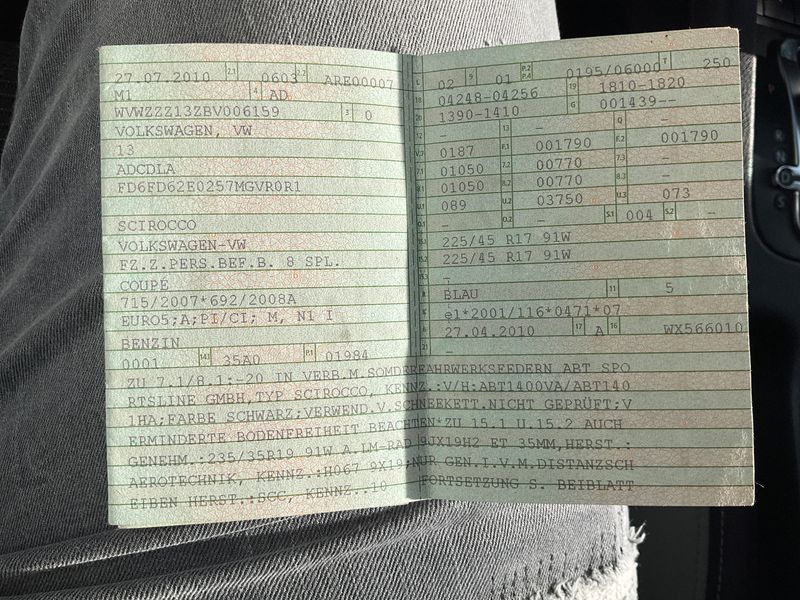 27.07.2010 2.1 0603 2.2 ARE00007
M1 4 AD
WVWZZZ13ZBV006159 3 0
VOLKSWAGEN, VW
13
ADCDLA
FD6FD62E0257MGVR0R1
SCIROCCO
VOLKSWAGEN-VW
FZ.Z.PERS.BEF.B. 8 SPL.
COUPE
715/2007*692/2008A
EURO5;A;PI/CI; M, N1 I
BENZIN
0001 14.1 35A0 P.1 01984
L 02 9 01 P.2 P.4 0195/06000 T 250
18 04248-04256 19 1810-1820
20 1390-1410 G 001439--
12 - 13 - Q -
V.7 0187 F.1 001790 F.2 001790
7.1 01050 7.2 00770 7.3 -
8.1 01050 8.2 00770 8.3 -
U.1 089 U.2 03750 U.3 073
O.1 - O.2 - S.1 004 S.2 -
15.1 225/45 R17 91W
15.2 225/45 R17 91W
15.3 -
R BLAU 11 5
K e1*2001/116*0471*07
6 27.04.2010 17 A 16 WX566010
21 -
ZU 7.1/8.1:-20 IN VERB.M.SOMDERFAHRWERKSFEDERN ABT SPO
RTSLINE GMBH,TYP SCIROCCO, KENNZ.:V/H:ABT1400VA/ABT140
1HA;FARBE SCHWARZ;VERWEND.V.SCHNEEKETT.NICHT GEPRÜFT;V
ERMINDERTE BODENFREIHEIT BEACHTEN*ZU 15.1 U.15.2 AUCH
GENEHM.:235/35R19 91W A.LM-RAD 9JX19H2 ET 35MM,HERST.:
AEROTECHNIK, KENNZ.:H067 9X19;NUR GEN.I.V.M.DISTANZSCH
EIBEN HERST.:SCC, KENNZ.:10 FORTSETZUNG S. BEIBLATT